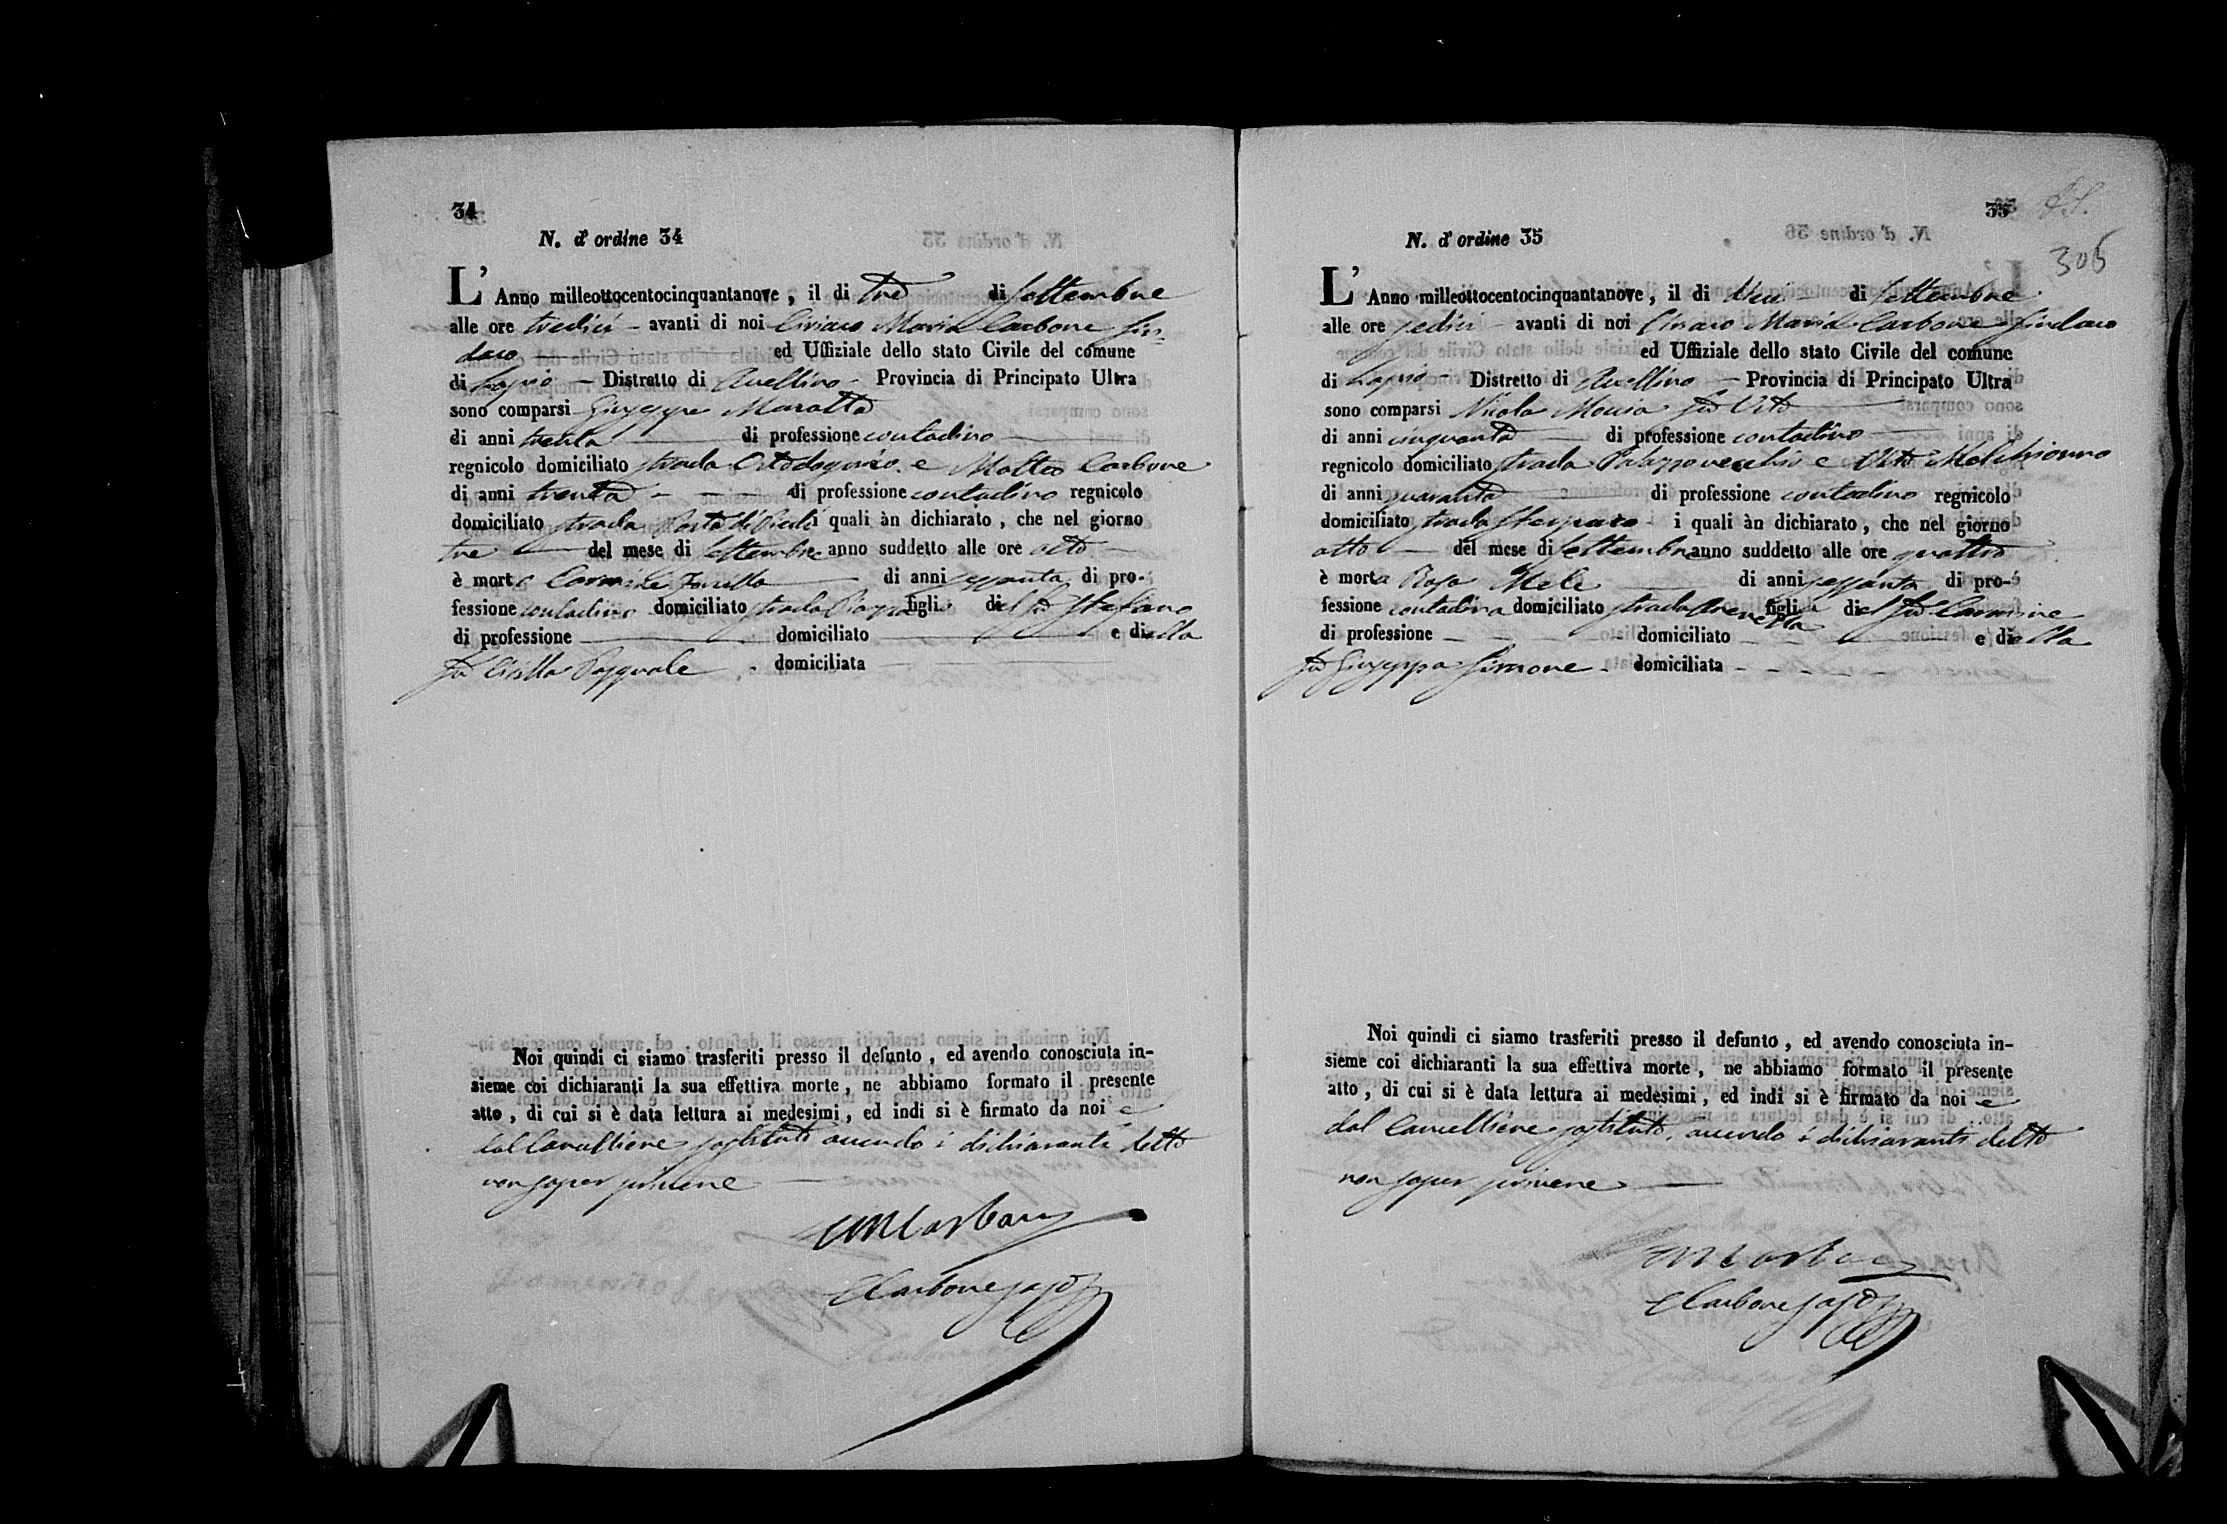 34
N. d'ordine 34
L'Anno milleottocentocinquantanove, il di tre di Settembre
alle ore tredici - avanti di noi Ciriaco Maria Carbone Sin=
daco ed Uffiziale dello stato Civile del comune
di Lapio - Distretto di Avellino - Provincia di Principato Ultra
sono comparsi Giuseppe Maratta
di anni trenta di professione contadino
regnicolo domiciliato strada e Matteo Carbone
di anni trenta - - - di professione contadino regnicolo
domiciliato strada Porta di i quali àn dichiarato, che nel giorno
tre del mese di Settembre anno suddetto alle ore otto
è morto Carmine di anni sessanta di pro-
fessione contadino domiciliato strada Piazza figlio del fu Stefano
di professione domiciliato e della
fu Pasquale domiciliata
Noi quindi ci siamo trasferiti presso il defunto, ed avendo conosciuta in-
sieme coi dichiaranti la sua effettiva morte, ne abbiamo formato il presente
atto, di cui si è data lettura ai medesimi, ed indi si è firmato da noi e
dal Cancelliere sostituto avendo i dichiaranti detto
non saper scrivere
CMCarbone
Carbone sost
35
305
N. d'ordine 35
L'Anno milleottocentocinquantanove, il di di Settembre
alle ore sedici avanti di noi Ciriaco Maria Carbone Sindaco
ed Uffiziale dello stato Civile del comune
di Lapio - Distretto di Avellino - Provincia di Principato Ultra
sono comparsi Nicola fu Vito
di anni cinquanta di professione contadino
regnicolo domiciliato strada Palazzovecchio e Vito Melchionno
di anni quaranta di professione contadino regnicolo
domiciliato strada i quali àn dichiarato, che nel giorno
otto del mese di Settembre anno suddetto alle ore quattro
è morta Rosa Mele di anni sessanta di pro-
fessione contadina domiciliato strada figlia del fu Carmine
di professione domiciliato e della
fu Giuseppa Simone domiciliata
Noi quindi ci siamo trasferiti presso il defunto, ed avendo conosciuta in-
sieme coi dichiaranti la sua effettiva morte, ne abbiamo formato il presente
atto, di cui si è data lettura ai medesimi, ed indi si è firmato da noi e
dal Cancelliere sostituto, avendo i dichiaranti detto
non saper scrivere
CMCarbone
Carbone sost